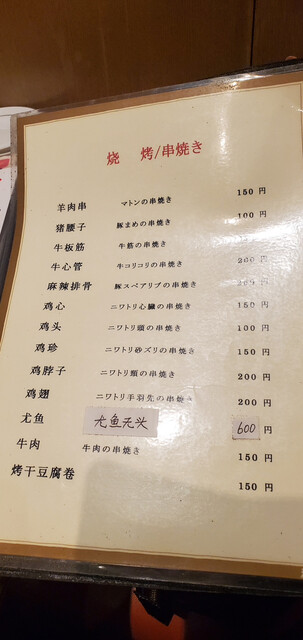 烧 烤/串焼き
羊肉串 マトンの串焼き 150 円
猪腰子 豚まめの串焼き 100 円
牛板筋 牛筋の串焼き 200 円
牛心管 牛コリコリの串焼き 200 円
麻辣排骨 豚スペアリブの串焼き 円
鸡心 ニワトリ心臓の串焼き 150 円
鸡头 ニワトリ頭の串焼き 100 円
鸡珍 ニワトリ砂ズリの串焼き 150 円
鸡脖子 ニワトリ頚の串焼き 200 円
鸡翅 ニワトリ手羽先の串焼き 200 円
尤鱼 尤鱼无头 600 円
牛肉 牛肉の串焼き 150 円
烤干豆腐卷 150 円